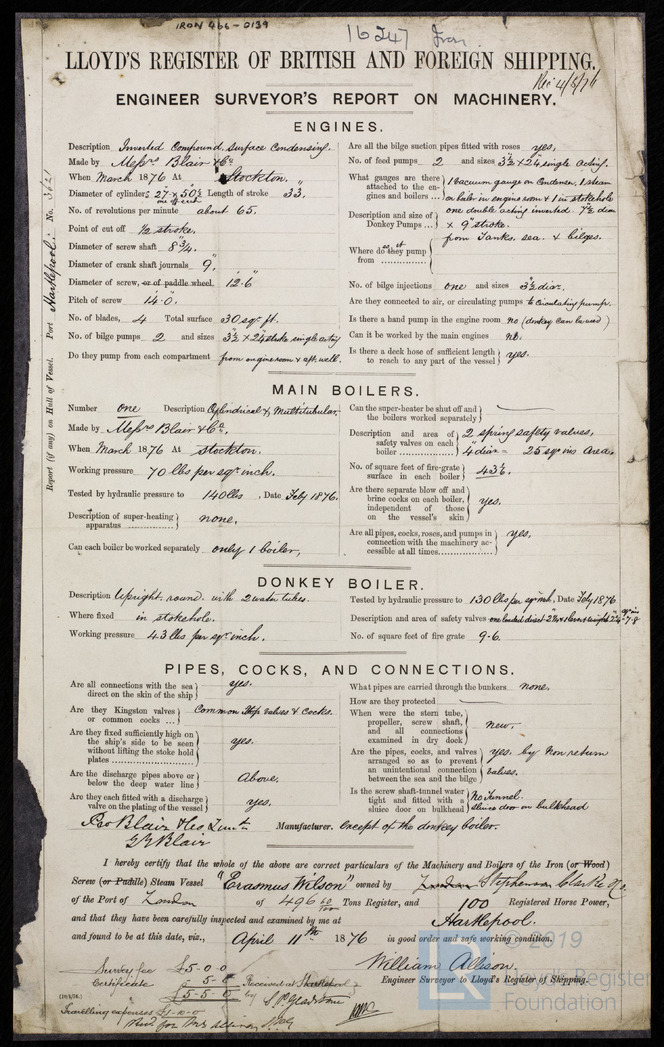 IRON 466-0139
16247 Iron
LLOYD'S REGISTER OF BRITISH AND FOREIGN SHIPPING.
Rec 4/5/76
ENGINEER SURVEYOR'S REPORT ON MACHINERY.
Report (if any) on Hull of Vessel. Port Hartlepool. No.
ENGINES.
Description Inverted Compound, surface Condensing.
Made by Messrs. Blair & Co.
When March 1876 At Stockton.
Diameter of cylinders 27" × 50½" Length of stroke 33"
one of each
No. of revolutions per minute about 65.
Point of cut off ½ stroke.
Diameter of screw shaft 8¾"
Diameter of crank shaft journals 9"
Diameter of screw, or of paddle wheel, 12'.6"
Pitch of screw 14'.0"
No. of blades, 4 Total surface 30 sqr. ft.
No. of bilge pumps 2 and sizes 3½" × 24" stroke single acting
Do they pump from each compartment from engine room & aft. well.
Are all the bilge suction pipes fitted with roses yes,
No. of feed pumps 2 and sizes 3½" × 24" single acting.
What gauges are there attached to the engines and boilers ... 1 Vacuum gauge on Condenser, 1 steam on boiler in engine room & 1 in stokehole
Description and size of Donkey Pumps ... one double acting inverted. 7½" diar × 9" stroke.
Where do they pump from from Tanks, sea. & bilges.
No. of bilge injections one and sizes 3½" diar.
Are they connected to air, or circulating pumps to Circulating pump.
Is there a hand pump in the engine room no (donkey can be used)
Can it be worked by the main engines no.
Is there a deck hose of sufficient length to reach to any part of the vessel yes.
MAIN BOILERS.
Number one Description Cylindrical & Multitubular.
Made by Messrs Blair & Co.
When March 1876 At Stockton.
Working pressure 70 lbs per sqr inch.
Tested by hydraulic pressure to 140 lbs. Date Feby 1876.
Description of super-heating apparatus none.
Can each boiler be worked separately only 1 boiler,
Can the super-heater be shut off and the boilers worked separately
Description and area of safety valves on each boiler 2 spring safety valves, 4" diar = 25 sqr ins area.
No. of square feet of fire-grate surface in each boiler 43½.
Are there separate blow off and brine cocks on each boiler, independent of those on the vessel's skin yes.
Are all pipes, cocks, roses, and pumps in connection with the machinery accessible at all times yes,
DONKEY BOILER.
Description Upright. round. with 2 water tubes.
Where fixed in stokehole.
Working pressure 43 lbs per sqr inch.
Tested by hydraulic pressure to 130 lbs per sqr inch, Date Feby 1876
Description and area of safety valves
No. of square feet of fire grate 9-6.
PIPES, COCKS, AND CONNECTIONS.
Are all connections with the sea direct on the skin of the ship yes.
Are they Kingston valves or common cocks ... Common Stop Valves & Cocks.
Are they fixed sufficiently high on the ship's side to be seen without lifting the stoke hold plates yes.
Are the discharge pipes above or below the deep water line Above.
Are they each fitted with a discharge valve on the plating of the vessel yes.
What pipes are carried through the bunkers none.
How are they protected
When were the stern tube, propeller, screw shaft, and all connections examined in dry dock new.
Are the pipes, cocks, and valves arranged so as to prevent an unintentional connection between the sea and the bilge yes. by non return valves.
Is the screw shaft-tunnel water tight and fitted with a sluice door on bulkhead No Tunnel. sluice door on bulkhead
Blair & Co Limtd Manufacturer. except of the donkey boiler.
G Y Blair
I hereby certify that the whole of the above are correct particulars of the Machinery and Boilers of the Iron (or Wood)
Screw (or Paddle) Steam Vessel "Erasmus Wilson" owned by London Stephenson Clarke & Co.
of the Port of London of 496 60/100 Tons Register, and 100 Registered Horse Power,
and that they have been carefully inspected and examined by me at Hartlepool.
and found to be at this date, viz., April 11th 1876 in good order and safe working condition.
William Allison.
Engineer Surveyor to Lloyd's Register of Shipping.
Survey fee £5-0-0
Certificate 5-0
£5-5-0
Received at
by
Travelling expenses £1-10-0
© 2019
LR
Lloyd's Register
Foundation